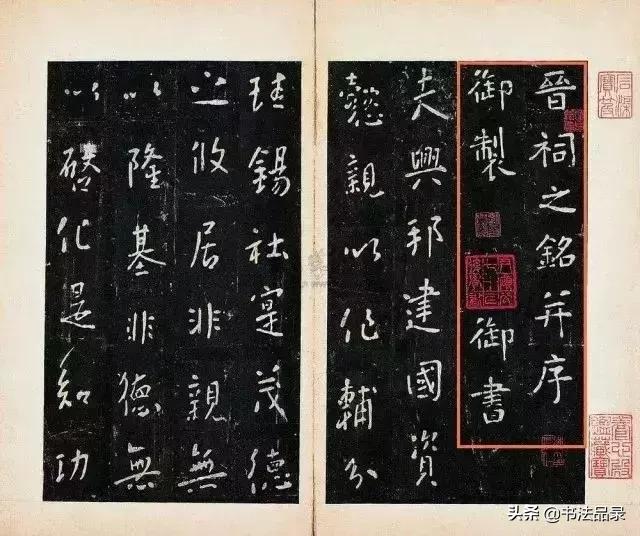 晉祠之銘并序
御製 御書
夫興邦建國資
懿親以作輔分
珪錫社寔茂德
之攸居非親無
以隆基非德無
以啓化是知功
头条 @书法品录